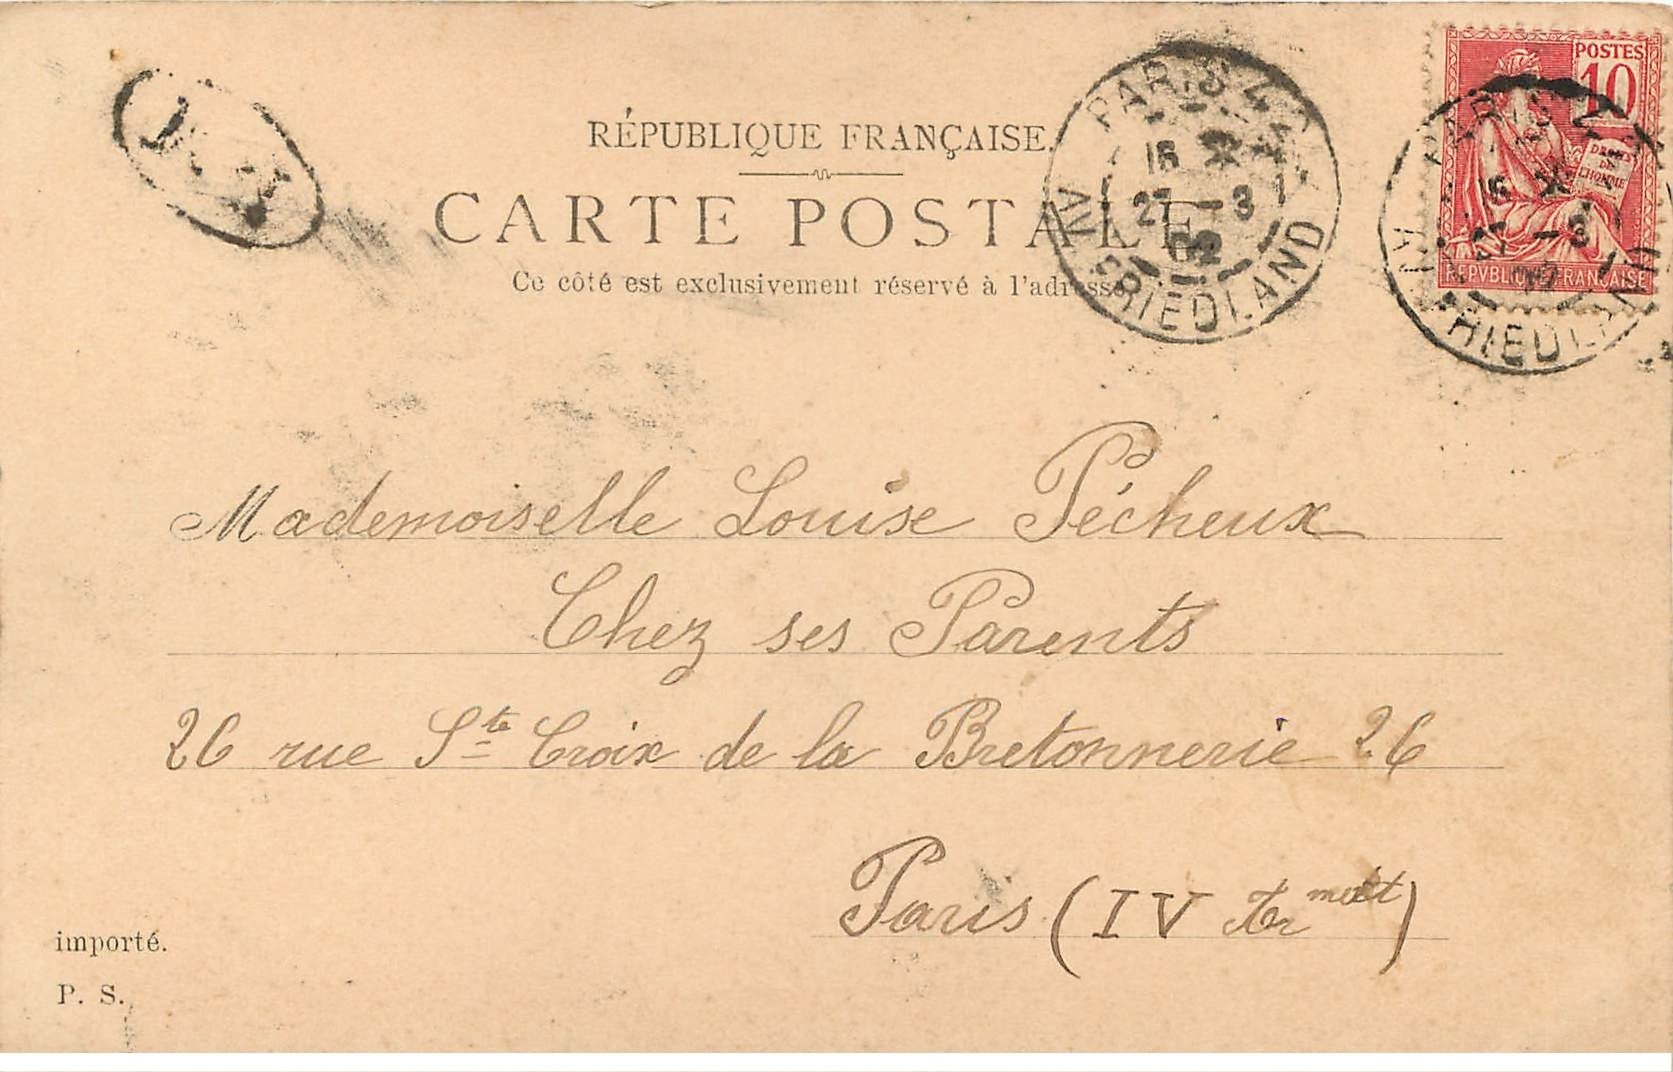 RÉPUBLIQUE FRANÇAISE.
CARTE POSTALE
Ce côté est exclusivement réservé à l'adresse
PARIS
16
27 - 3
02
AV FRIEDLAND
POSTES
10
DROITS
DE
L'HOMME
REPVBLIQVE FRANÇAISE
16
27 - 3
Mademoiselle Louise Pécheux
Chez ses Parents
26 rue Ste Croix de la Bretonnerie 26
Paris (IV
importé.
P. S.